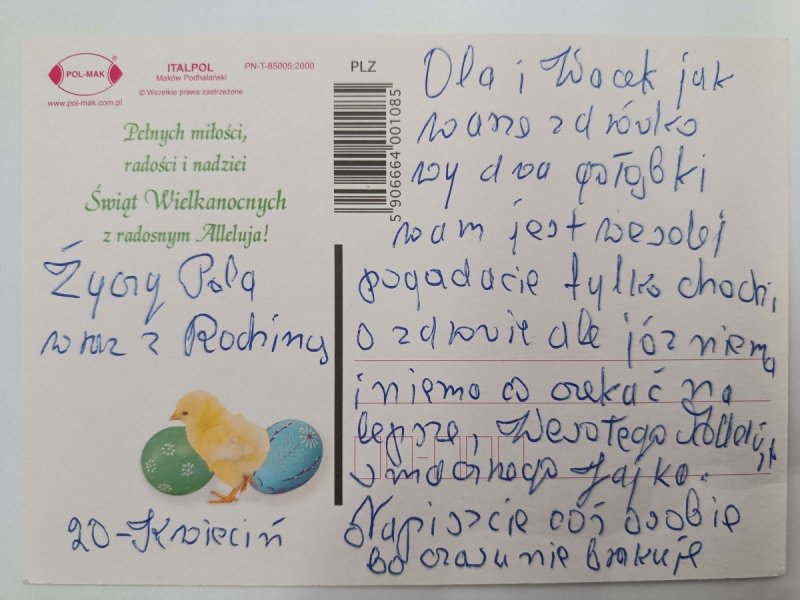 POL-MAK
®
www.pol-mak.com.pl
ITALPOL
Maków Podhalański
PN-T-85005:2000
© Wszelkie prawa zastrzeżone
PLZ
5 906664 001085
Pełnych miłości,
radości i nadziei
Świąt Wielkanocnych
z radosnym Alleluja!
Życzy Pola
wraz z Rodziną
20-Kwieciń
Ola i Wacek jak
wasze zdrówko
wy dwa gołąbki
wam jest weselej
pogadacie tylko chodzi,
o zdrowie ale jóż niema
i niema co czekać na
lepsze, Wesołego
smacznego Jajka.
Napiszcie coś o sobie
bo czasu nie brakuje